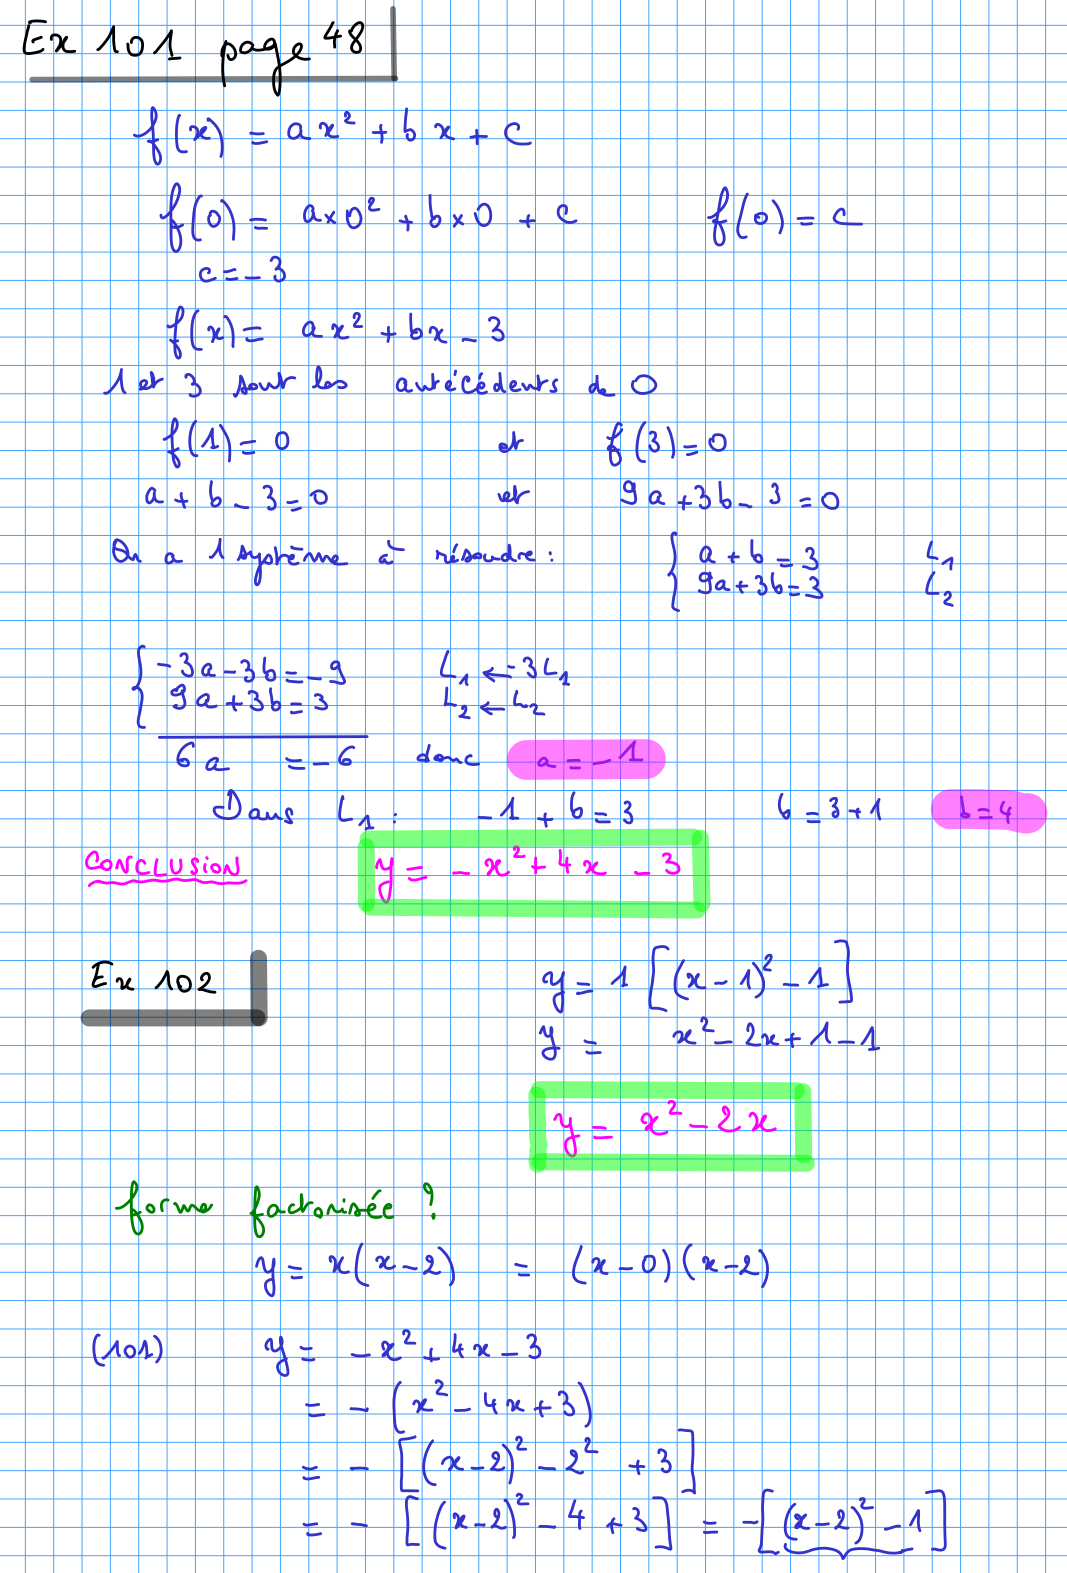 Ex 101 page 48
f(x) = ax² + bx + c
f(0) = a×0² + b×0 + c    f(0) = c
c = -3
f(x) = ax² + bx - 3
1 et 3 sont les antécédents de 0
f(1) = 0    et    f(3) = 0
a + b - 3 = 0    et    9a + 3b - 3 = 0
On a 1 système à résoudre : { a + b = 3    L₁
9a + 3b = 3    L₂
{ -3a - 3b = -9    L₁ ← -3L₁
9a + 3b = 3    L₂ ← L₂
6a = -6    donc    a = -1
Dans L₁ :    -1 + b = 3    b = 3 + 1    b = 4
CONCLUSION    y = -x² + 4x - 3
Ex 102    y = 1 [(x - 1)² - 1]
y = x² - 2x + 1 - 1
y = x² - 2x
forme factorisée ?
y = x(x - 2) = (x - 0)(x - 2)
(101)    y = -x² + 4x - 3
= - (x² - 4x + 3)
= - [(x - 2)² - 2² + 3]
= - [(x - 2)² - 4 + 3] = -[(x - 2)² - 1]